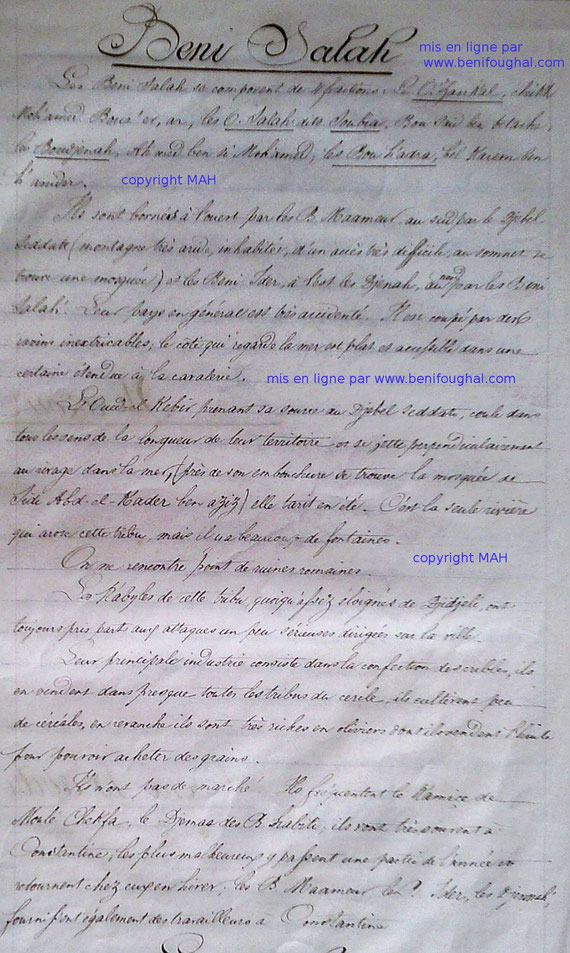 Beni Salah
mis en ligne par
www.benifoughal.com
Les Beni Salah se composent de 4 fractions: Les O. cheikh
Mohamed les O. Salah dits Bou ben
les Boudjenah, Ahmed ben si Mohamed, les Bou h'adra, bel Karem ben
h'amida.
copyright MAH
Ils sont bornés à l'ouest par les B. Maameur, au sud par le Djebel
Seddats (montagne très aride, inhabitée, d'un accès très difficile, au sommet se
trouve une mosquée) et les Beni Ider, à l'est les Djenah, au nord par les Beni
Salah. Leur pays en général est très accidenté. Il est coupé par des
ravins inextricables; le côté qui regarde la mer est plat et accessible dans une
certaine étendue à la cavalerie.
mis en ligne par www.benifoughal.com
L'Oued el Kebir prenant sa source au Djebel Seddats, coule dans
tous les sens de la longueur de leur territoire et se jette perpendiculairement
au rivage dans la mer, (près de son embouchure se trouve la mosquée de
Sidi Abd-el-Kader ben aziz) elle tarit en été. C'est la seule rivière
qui arose cette tribu, mais il y a beaucoup de fontaines.
copyright MAH
On ne rencontre point de ruines romaines.
Les Kabyles de cette tribu, quoiqu'assez éloignés de Djidjeli, ont
toujours pris part aux attaques un peu sérieuses dirigées sur la ville.
Leur principale industrie consiste dans la confection des cribles, ils
en vendent dans presque toutes les tribus du cercle, ils cultivent peu
de céréales, en revanche ils sont très riches en oliviers dont ils vendent l'huile
pour pouvoir acheter des grains.
Ils n'ont pas de marché. Ils fréquentent le Kamice de
Moule Chekfa, le Djemaa des B. habibi, ils vont très souvent à
Constantine; les plus malheureux y passent une partie de l'année et
retournent chez eux en hiver. les B. Maameur les B. Ider, les Djenah,
fournissent également des travailleurs a Constantine